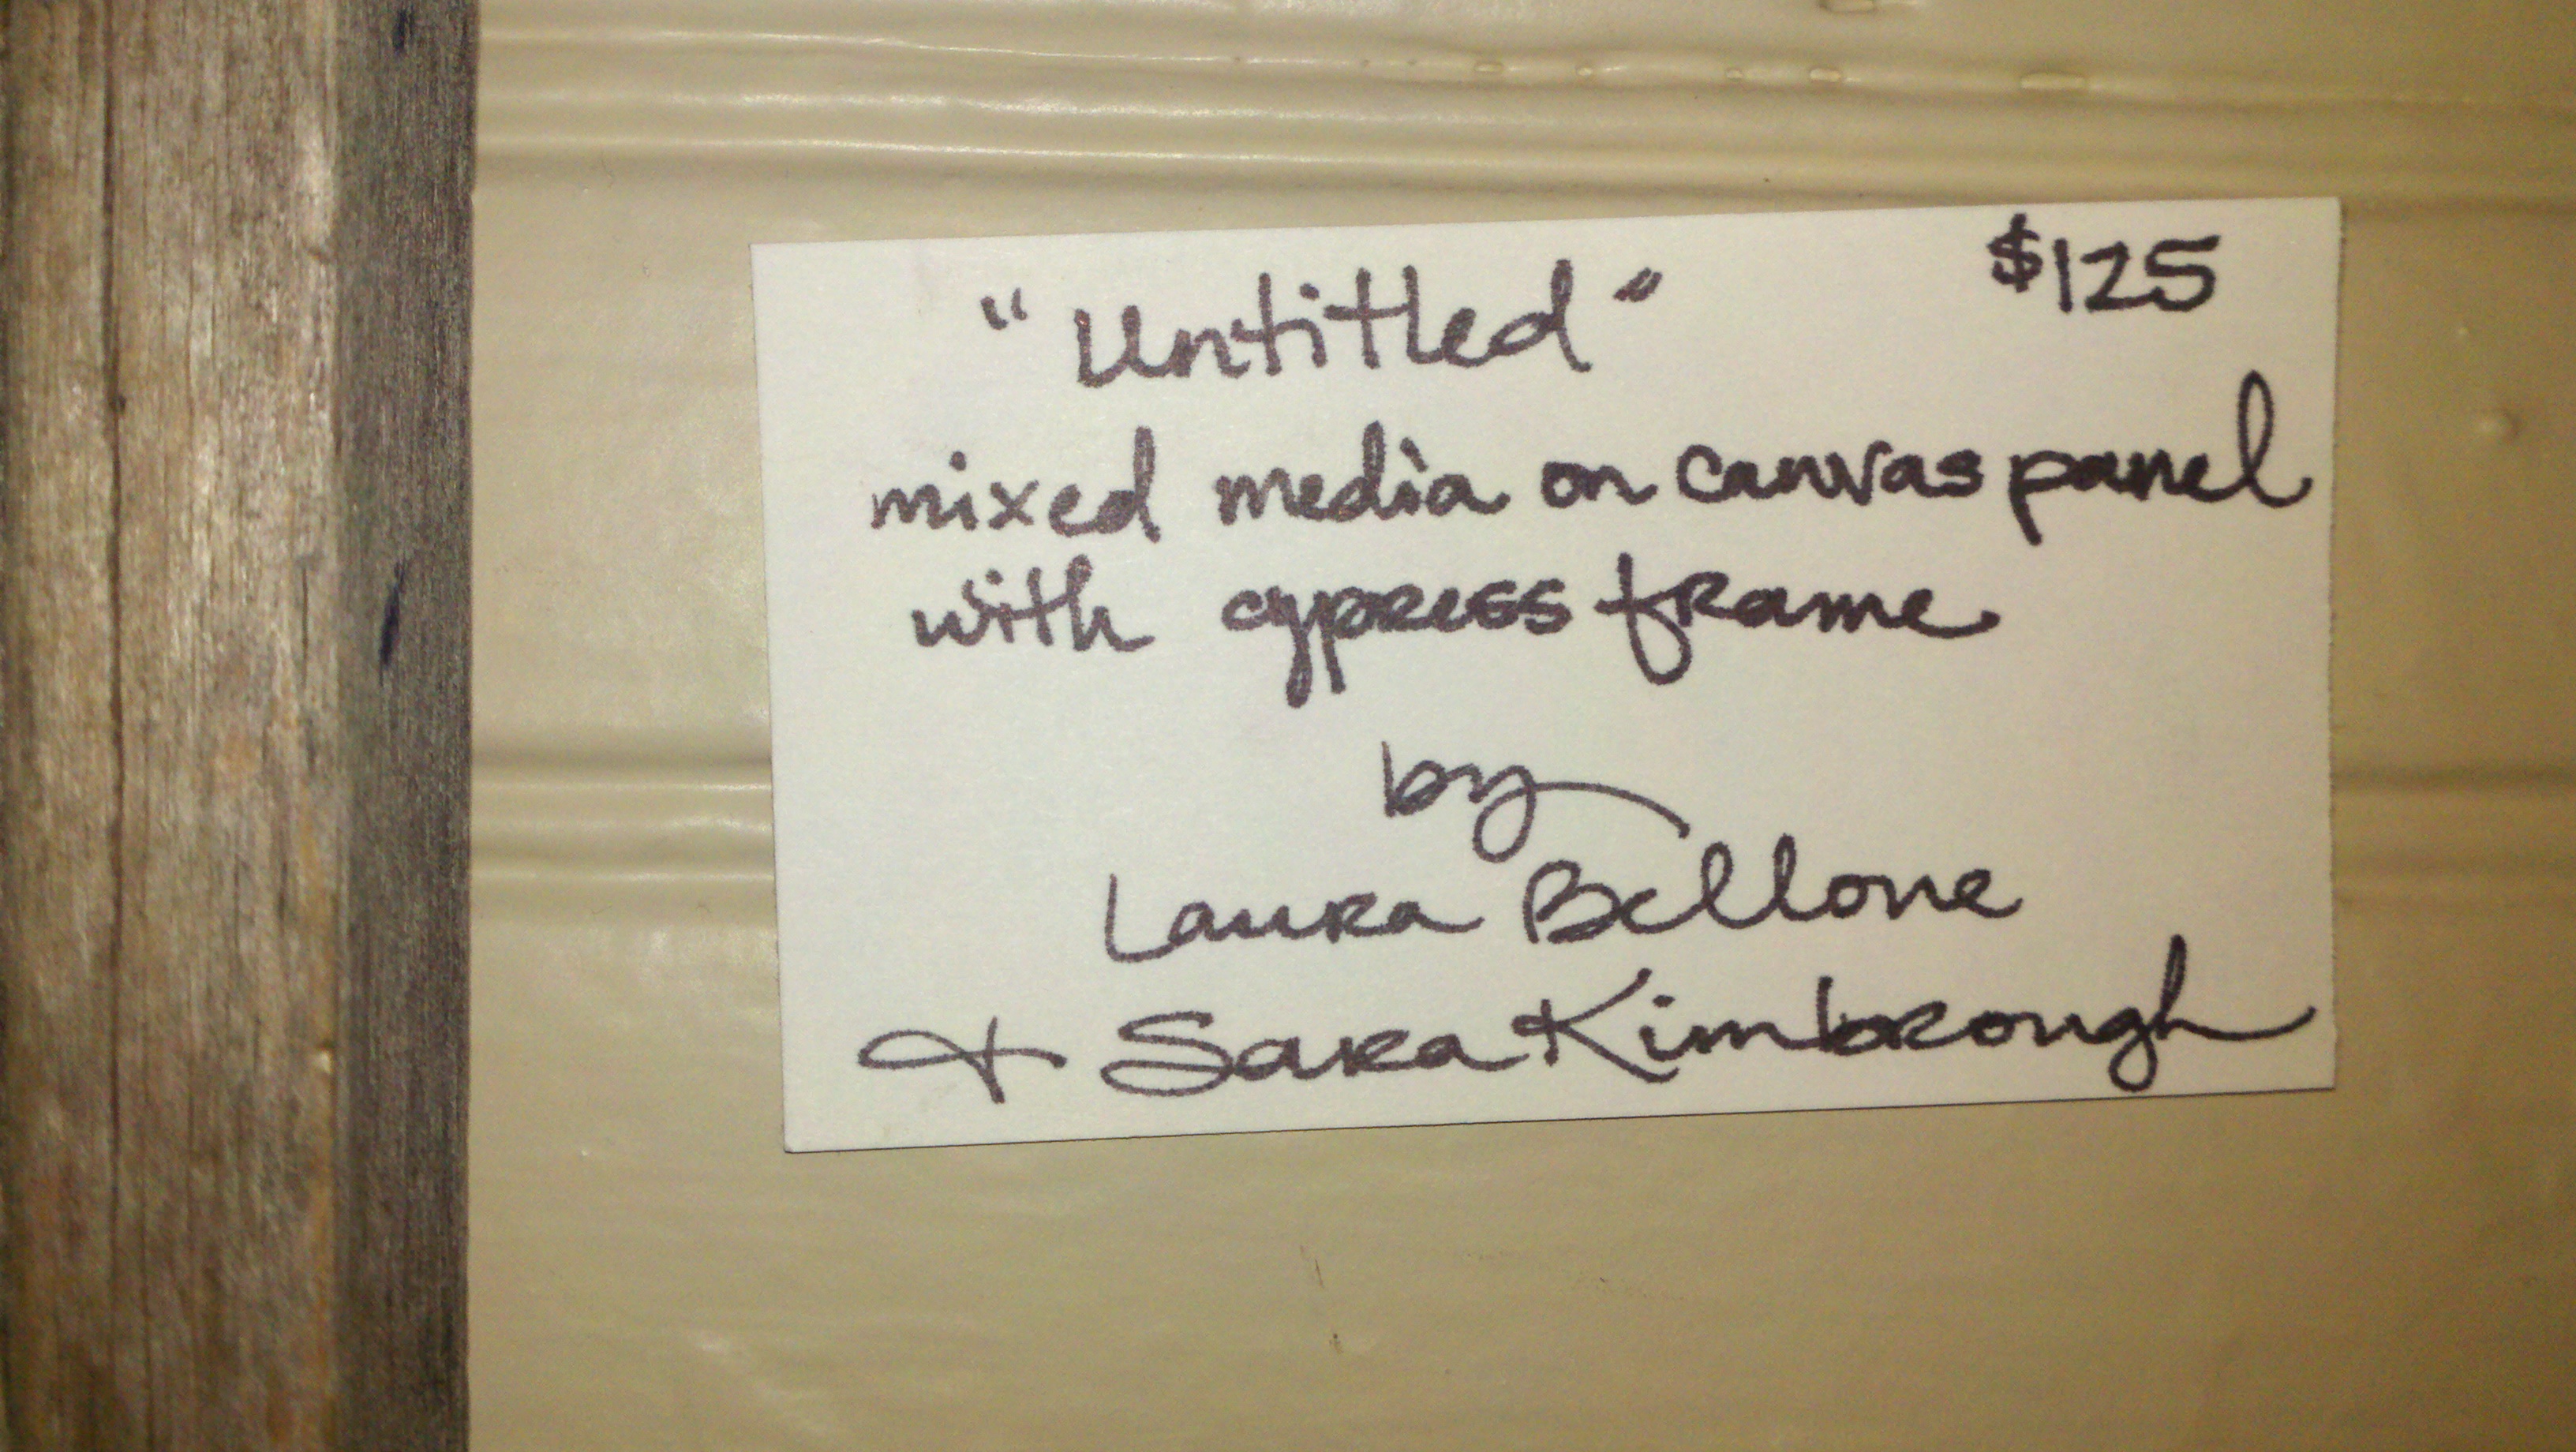 "Untitled" $125
mixed media on canvas panel
with cypress frame
by
Laura Bellone
+ Sara Kimbrough